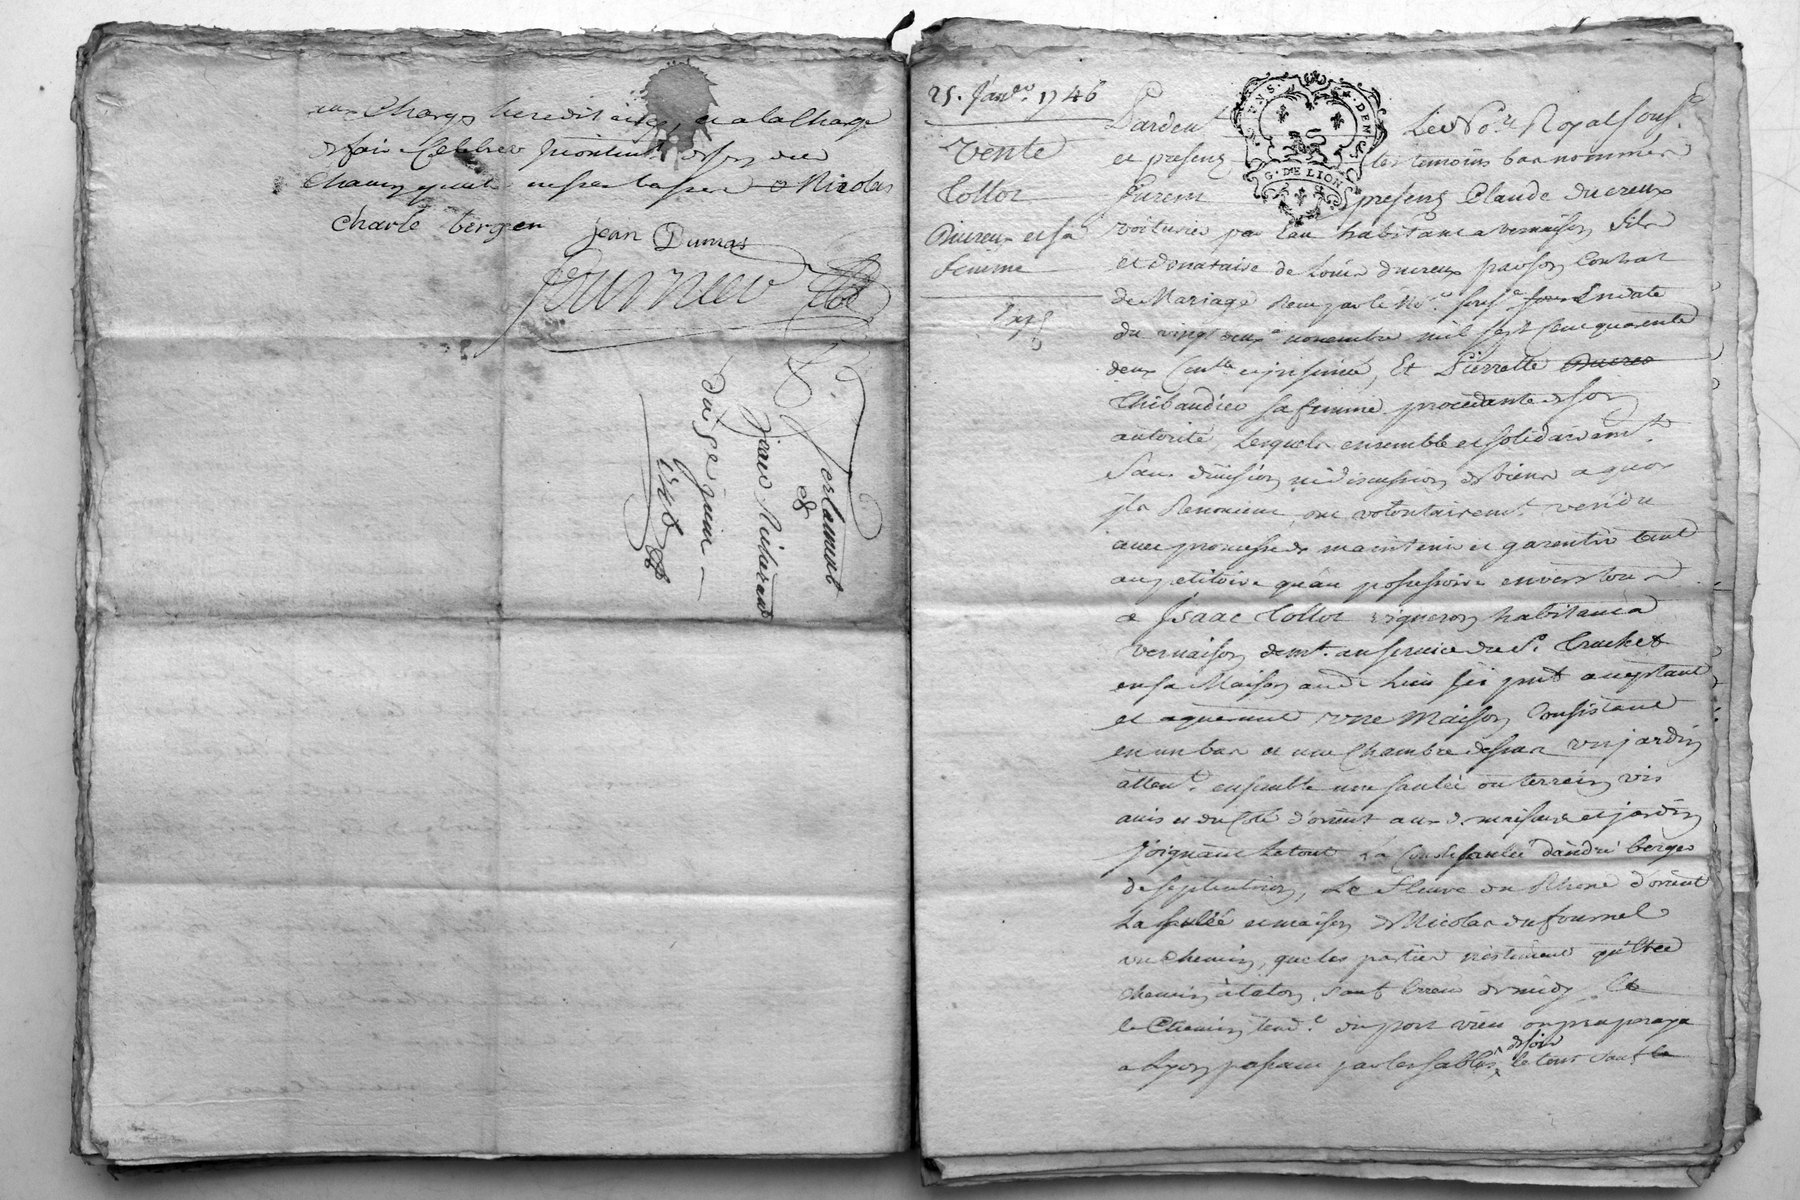 aux charges hereditaires, et a la charge
de faire celebrer
Nicolas
Charle bergeon
Jean Dumas
fournier
testament
&
jean Richerand
du 5e juin
25. Janv.er 1746
Vente
Collot
Ducreux et sa
femme
Exp
UNS. DEN.
G. DE LION
Pardev.t Les No.re Royal sous.é
et presens les temoins bas nommés
furent presens Claude ducreux
voiturier par Eau habitant a vernaison fils
et donataire de Louis ducreux par son Contrat
de Mariage Receu par le No.re sous.é En date
du vingt deux.e novembre mil sept Cent quarente
deux Con.lle et insinué, Et Pierrette Ducreu
Thibaudier sa femme procedante de son
autorité, Lesquels ensemble et solidairem.t
Sans division ni discussion de biens a quoy
ils Renoncent, ont volontairem.t vendu
avec promesse de maintenir et garentir tant
au petitoire qu'au possessoire envers tous
a Isaac Collot vigneron habitant a
vernaison dem.t au service du S.r Truchet
en sa Maison aud. Lieu ici pnt aceptant
et aquerant une Maison Consistant
en un bas et une Chambre dessus un jardin
atten.t ensemble une saulée ou terrein vis
avis et du Coté d'orient aux d. maison et jardin
joignant Le tout La saulée d'andré berger
de septentrion, Le fleuve du Rhone d'orient
La saulée et maison de Nicolas dufournel
un chemin, que les parties
chemin sauf erreur de midy, Et
le Chemin tend.t du port vieu
a Lyon passant par les sables, de soir le tout sauf le